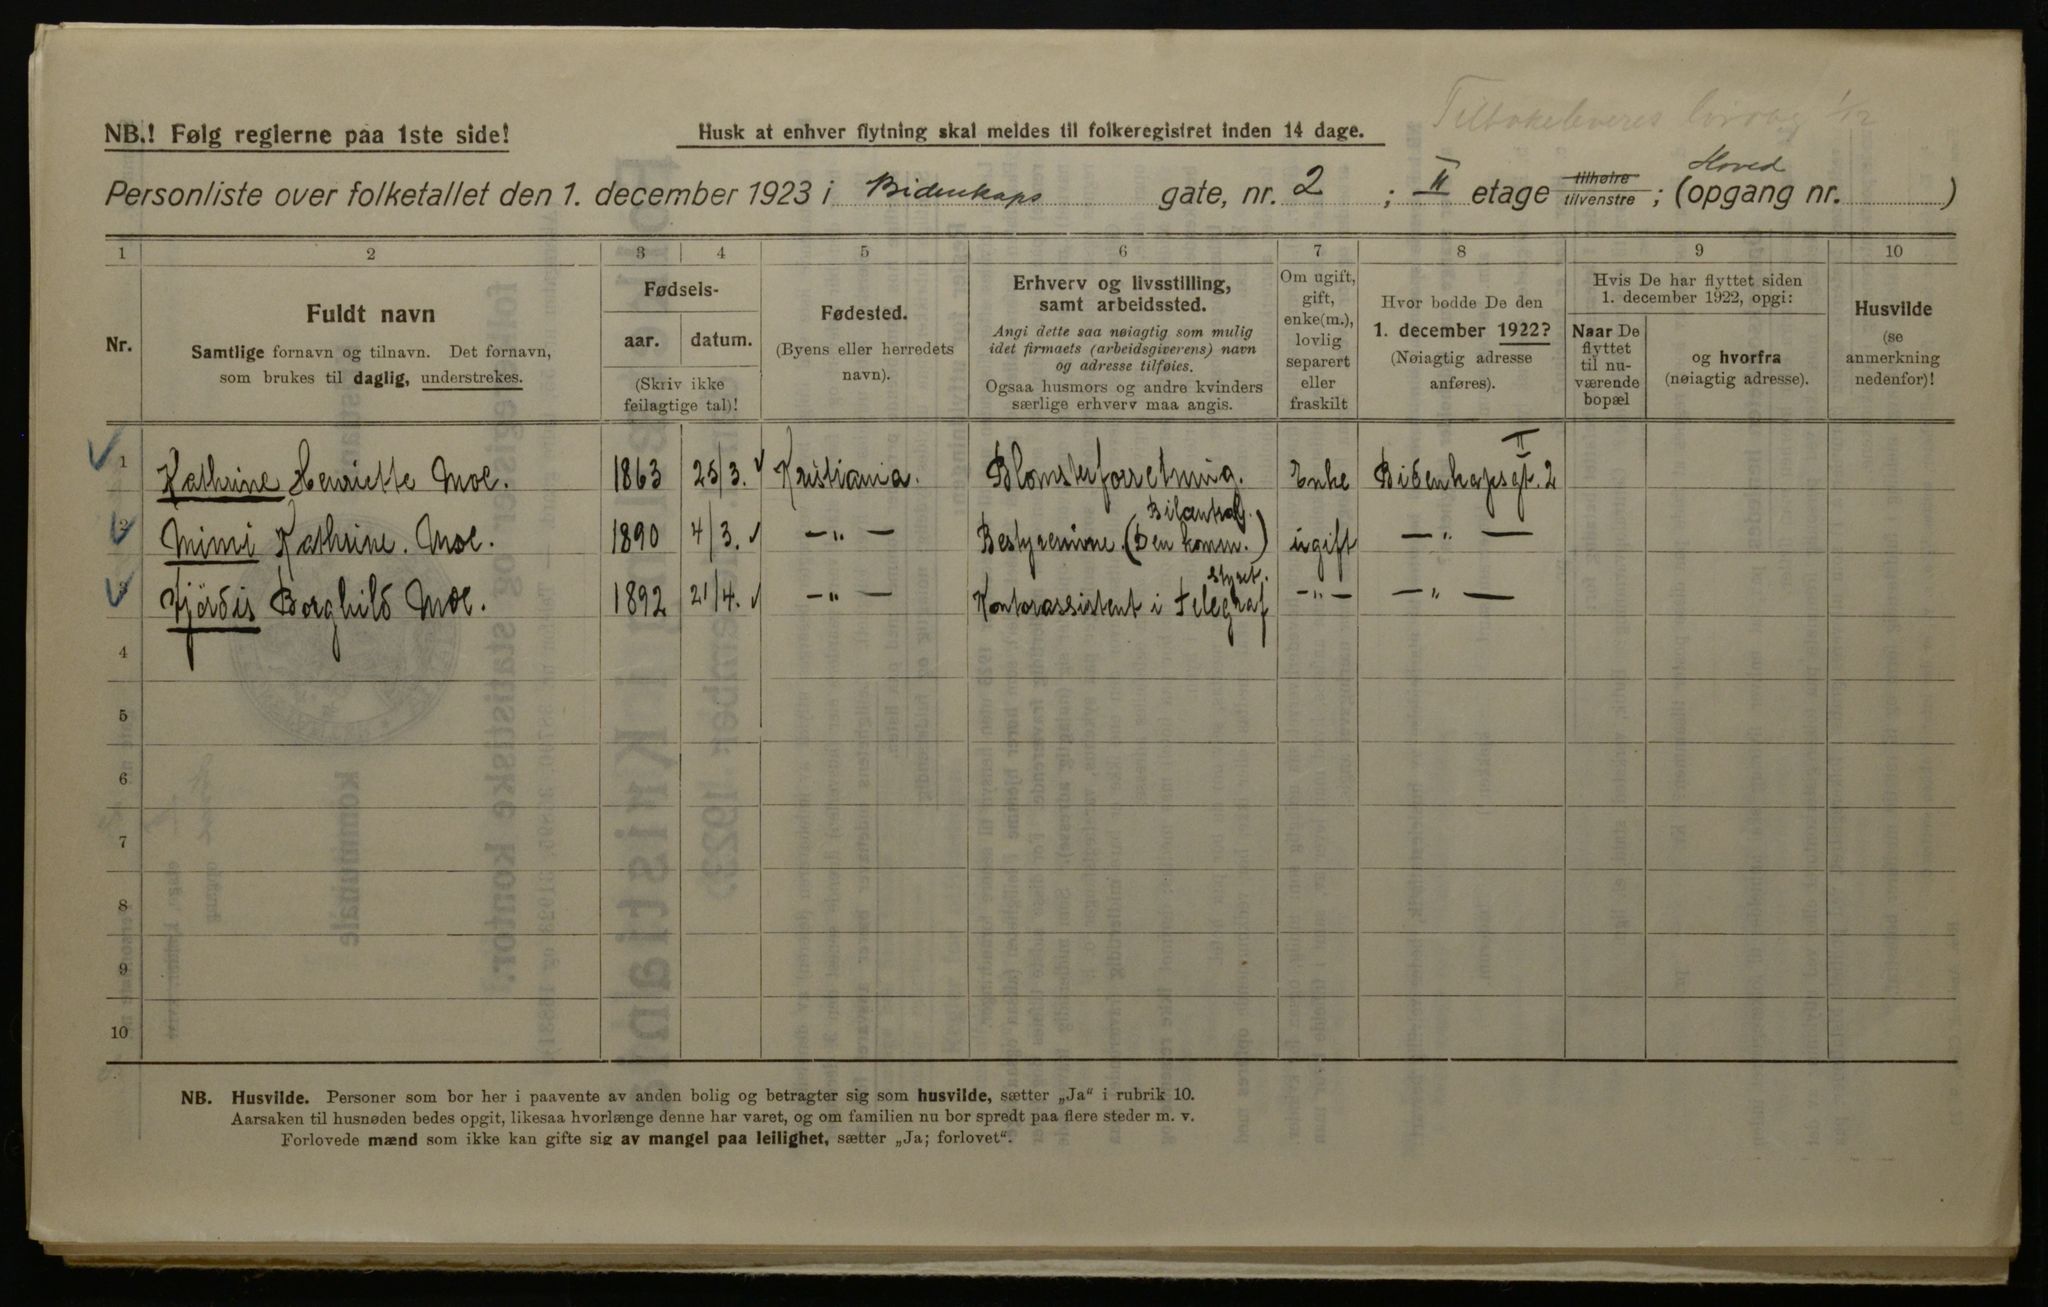 Tilbakeleveres 1/12
NB.! Følg reglerne paa 1ste side!
Husk at enhver flytning skal meldes til folkeregistret inden 14 dage.
Personliste over folketallet den 1. december 1923 i Bidenkaps gate, nr. 2 ; II etage tilhøire tilvenstre ; (Hoved opgang nr. )
1 2 3 4 5 6 7 8 9 10
Nr.
Fuldt navn
Samtlige fornavn og tilnavn. Det fornavn,
som brukes til daglig, understrekes.
Fødsels-
aar. datum.
(Skriv ikke
feilagtige tal)!
Fødested.
(Byens eller herredets
navn).
Erhverv og livsstilling,
samt arbeidssted.
Angi dette saa nøiagtig som mulig
idet firmaets (arbeidsgiverens) navn
og adresse tilføies.
Ogsaa husmors og andre kvinders
særlige erhverv maa angis.
Om ugift,
gift,
enke(m.),
lovlig
separert
eller
fraskilt
Hvor bodde De den
1. december 1922?
(Nøiagtig adresse
anføres).
Hvis De har flyttet siden
1. december 1922, opgi:
Naar De
flyttet
til nu-
værende
bopæl
og hvorfra
(nøiagtig adresse).
Husvilde
(se
anmerkning
nedenfor)!
1 Kathrine Henriette Moe. 1863 25/3. Kristiania. Blomsterforretning. Enke Bidenkapsgt. 2 II
2 Mimi Kathrine. Moe. 1890 4/3. —„— Bestyrerinne. (Den komm. Bilcentral.) ugift —„—
3 Hjördis Borghild Moe. 1892 21/4. —„— Kontorassistent i Telegraf styret. —„— —„—
4
5
6
7
8
9
10
NB. Husvilde. Personer som bor her i paavente av anden bolig og betragter sig som husvilde, sætter „Ja“ i rubrik 10.
Aarsaken til husnøden bedes opgit, likesaa hvorlænge denne har varet, og om familien nu bor spredt paa flere steder m. v.
Forlovede mænd som ikke kan gifte sig av mangel paa leilighet, sætter „Ja; forlovet“.